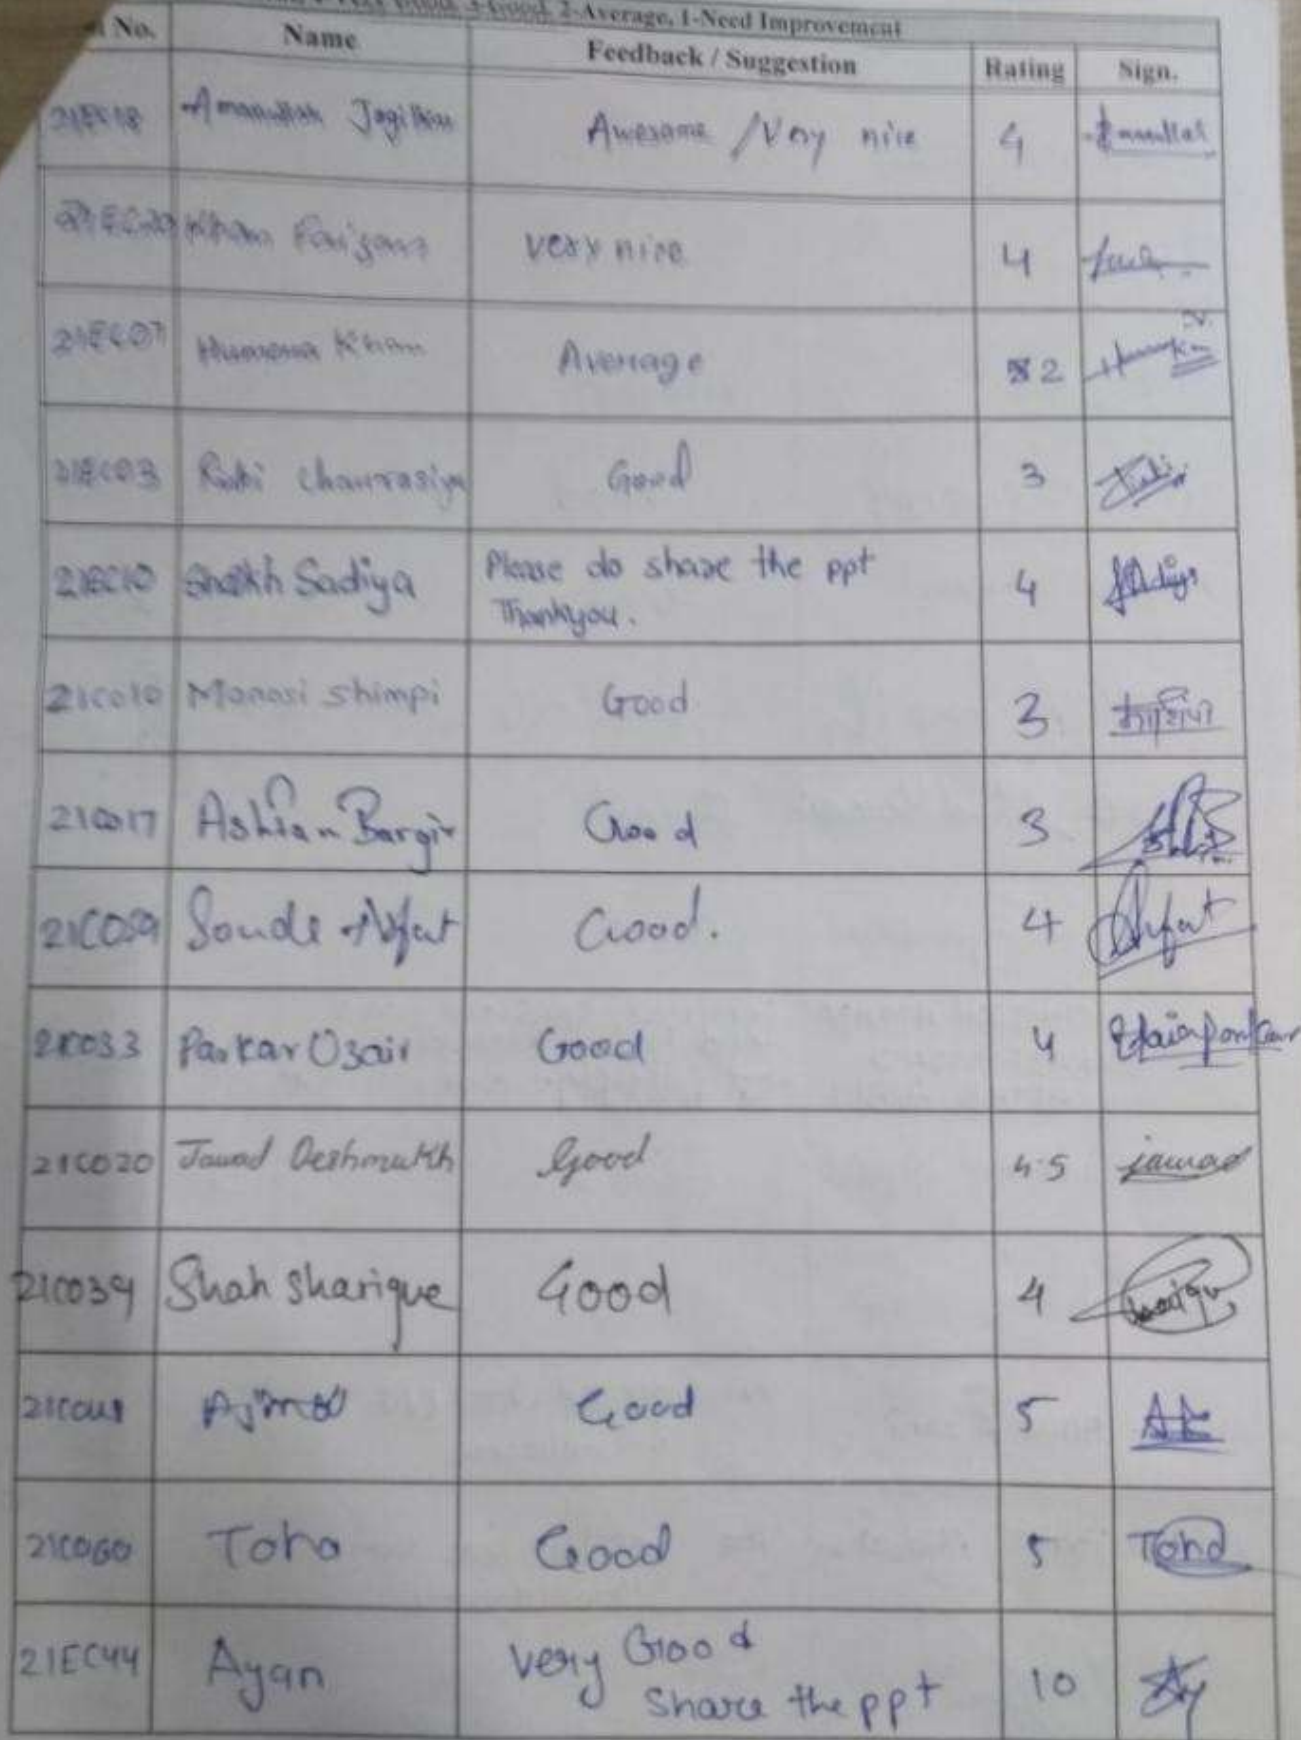 4-Very Good, 3-Good, 2-Average, 1-Need Improvement
No. Name Feedback / Suggestion Rating Sign.
21EC18 Amanullah Awesome / Very nice 4 Amanullah
Khan Faizan very nice 4
21EC07 Humera Khan Average 2
21EC03 Rubi Chaurasiya Good 3
21EC10 Shaikh Sadiya Please do share the ppt 4 Sadiya
Thankyou.
21CO10 Manasi Shimpi Good 3
21CO17 Bargir Good 3
21CO59 Sonde Arfat Good. 4 Arfat
21CO33 Parkar Uzair Good 4 Uzair parkar
21CO20 Jawad Deshmukh Good 4.5 jawad
21CO39 Shah Sharique Good 4 Sharique
Good 5
21CO60 Toha Good 5 Toha
21EC44 Ayan Very Good 10 Ay
Share the ppt